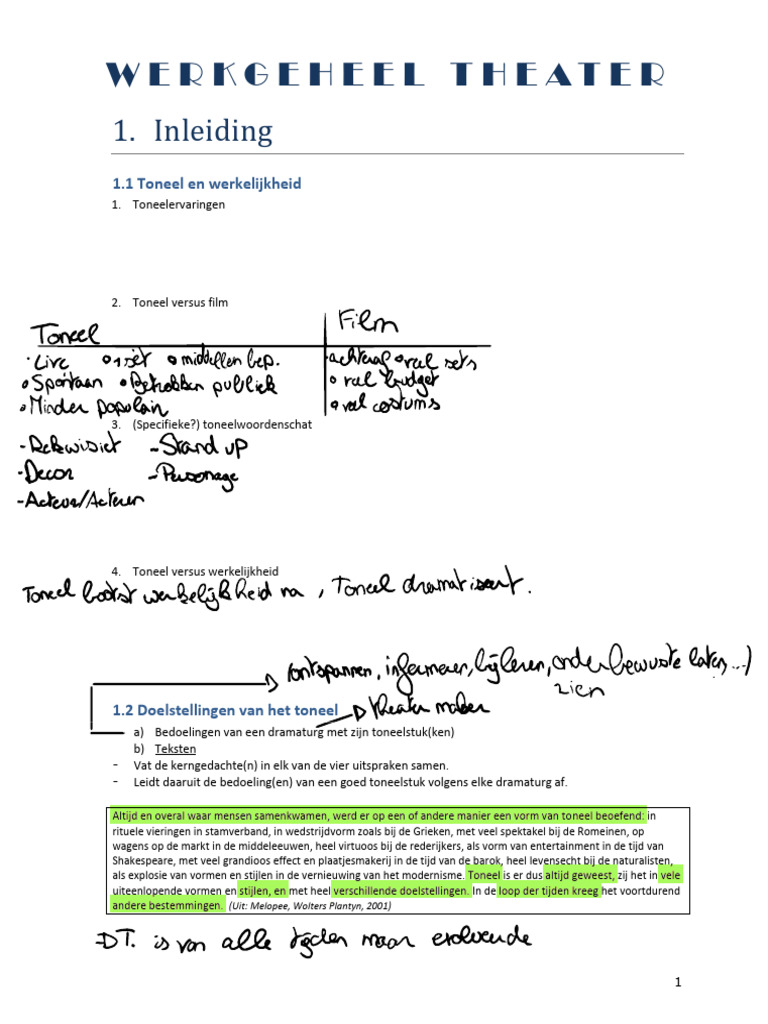 WERKGEHEEL THEATER
1. Inleiding
1.1 Toneel en werkelijkheid
1. Toneelervaringen
2. Toneel versus film
Toneel Film
· Live o 1 set o middellen bep. · achteraf o veel sets
o Spontaan o Betrokken publiek o veel budget
o Minder populair o veel costums
3. (Specifieke?) toneelwoordenschat
- Rekwisiet - Stand up
- Decor - Personage
- Acteurs/Acteren
4. Toneel versus werkelijkheid
Toneel bootst werkelijkheid na, Toneel dramatiseert.
(ontspannen, informeren, bijleren, onderbewuste laten, ...)
zien
1.2 Doelstellingen van het toneel theater maker
a) Bedoelingen van een dramaturg met zijn toneelstuk(ken)
b) Teksten
- Vat de kerngedachte(n) in elk van de vier uitspraken samen.
- Leidt daaruit de bedoeling(en) van een goed toneelstuk volgens elke dramaturg af.
Altijd en overal waar mensen samenkwamen, werd er op een of andere manier een vorm van toneel beoefend: in
rituele vieringen in stamverband, in wedstrijdvorm zoals bij de Grieken, met veel spektakel bij de Romeinen, op
wagens op de markt in de middeleeuwen, heel virtuoos bij de rederijkers, als vorm van entertainment in de tijd van
Shakespeare, met veel grandioos effect en plaatjesmakerij in de tijd van de barok, heel levensecht bij de naturalisten,
als explosie van vormen en stijlen in de vernieuwing van het modernisme. Toneel is er dus altijd geweest, zij het in vele
uiteenlopende vormen en stijlen, en met heel verschillende doelstellingen. In de loop der tijden kreeg het voortdurend
andere bestemmingen. (Uit: Melopee, Wolters Plantyn, 2001)
T. is van alle tijden maar evoluende
1